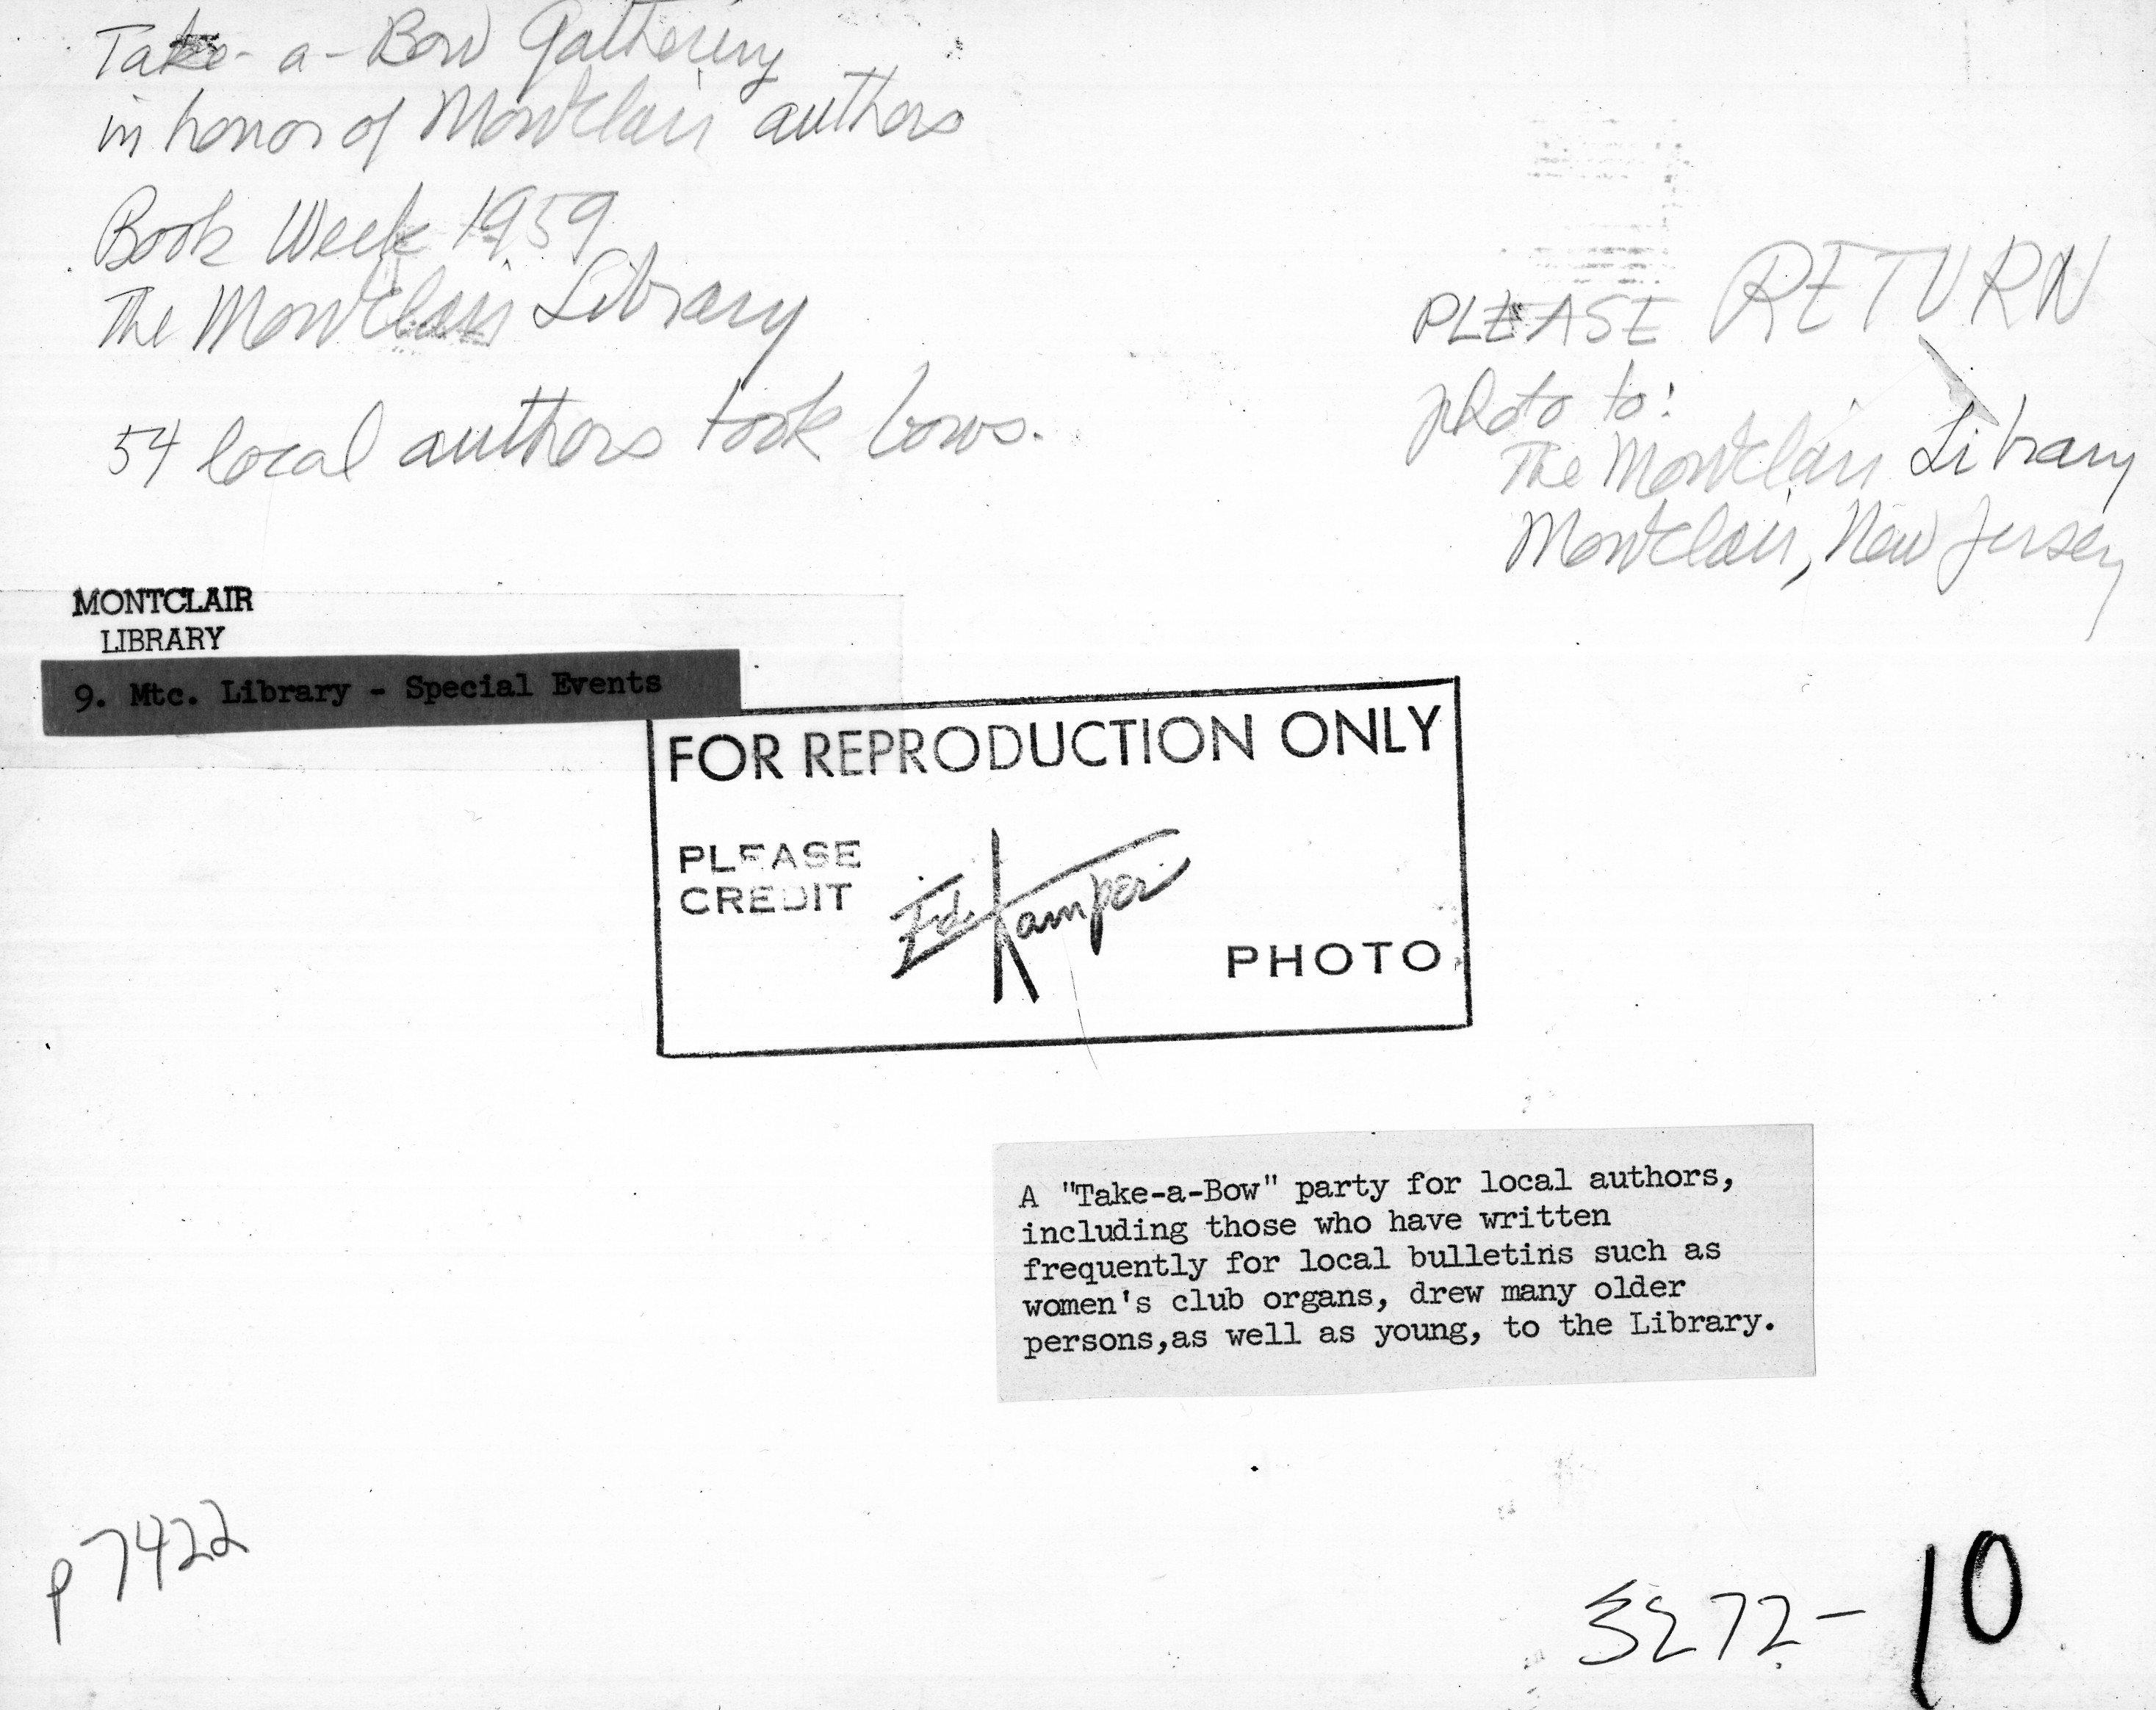 Take-a-Bow Gathering
in honor of Montclair authors
Book Week 1959
The Montclair Library
54 local authors took bows.
PLEASE RETURN
photo to:
The Montclair Library
Montclair, New Jersey
MONTCLAIR
LIBRARY
9. Mtc. Library - Special Events
FOR REPRODUCTION ONLY
PLEASE
CREDIT
Ed. Kamper
PHOTO
A "Take-a-Bow" party for local authors,
including those who have written
frequently for local bulletins such as
women's club organs, drew many older
persons,as well as young, to the Library.
p7422
3272-10